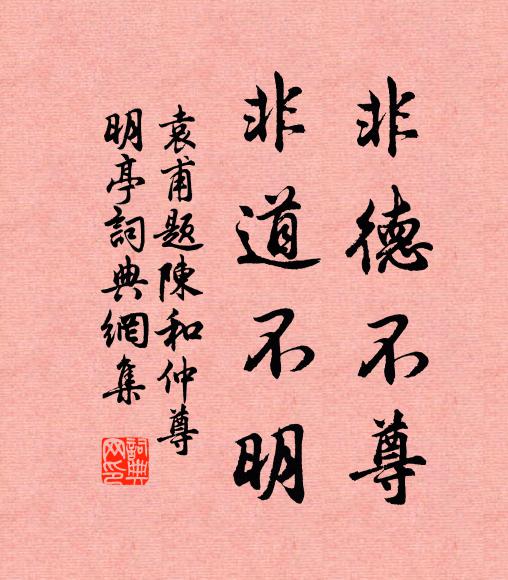 非德不尊
非道不明
袁甫題陳和仲尊
明亭詞典網集
詞典网印